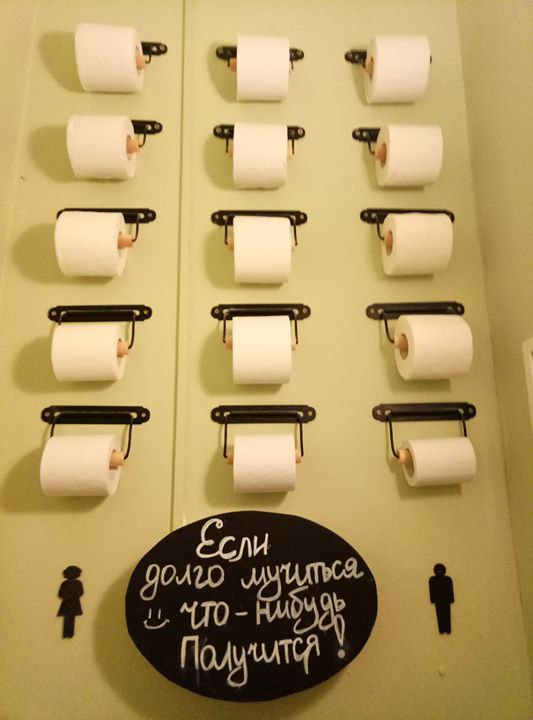 Если
долго мучиться
что-нибудь
Получится!